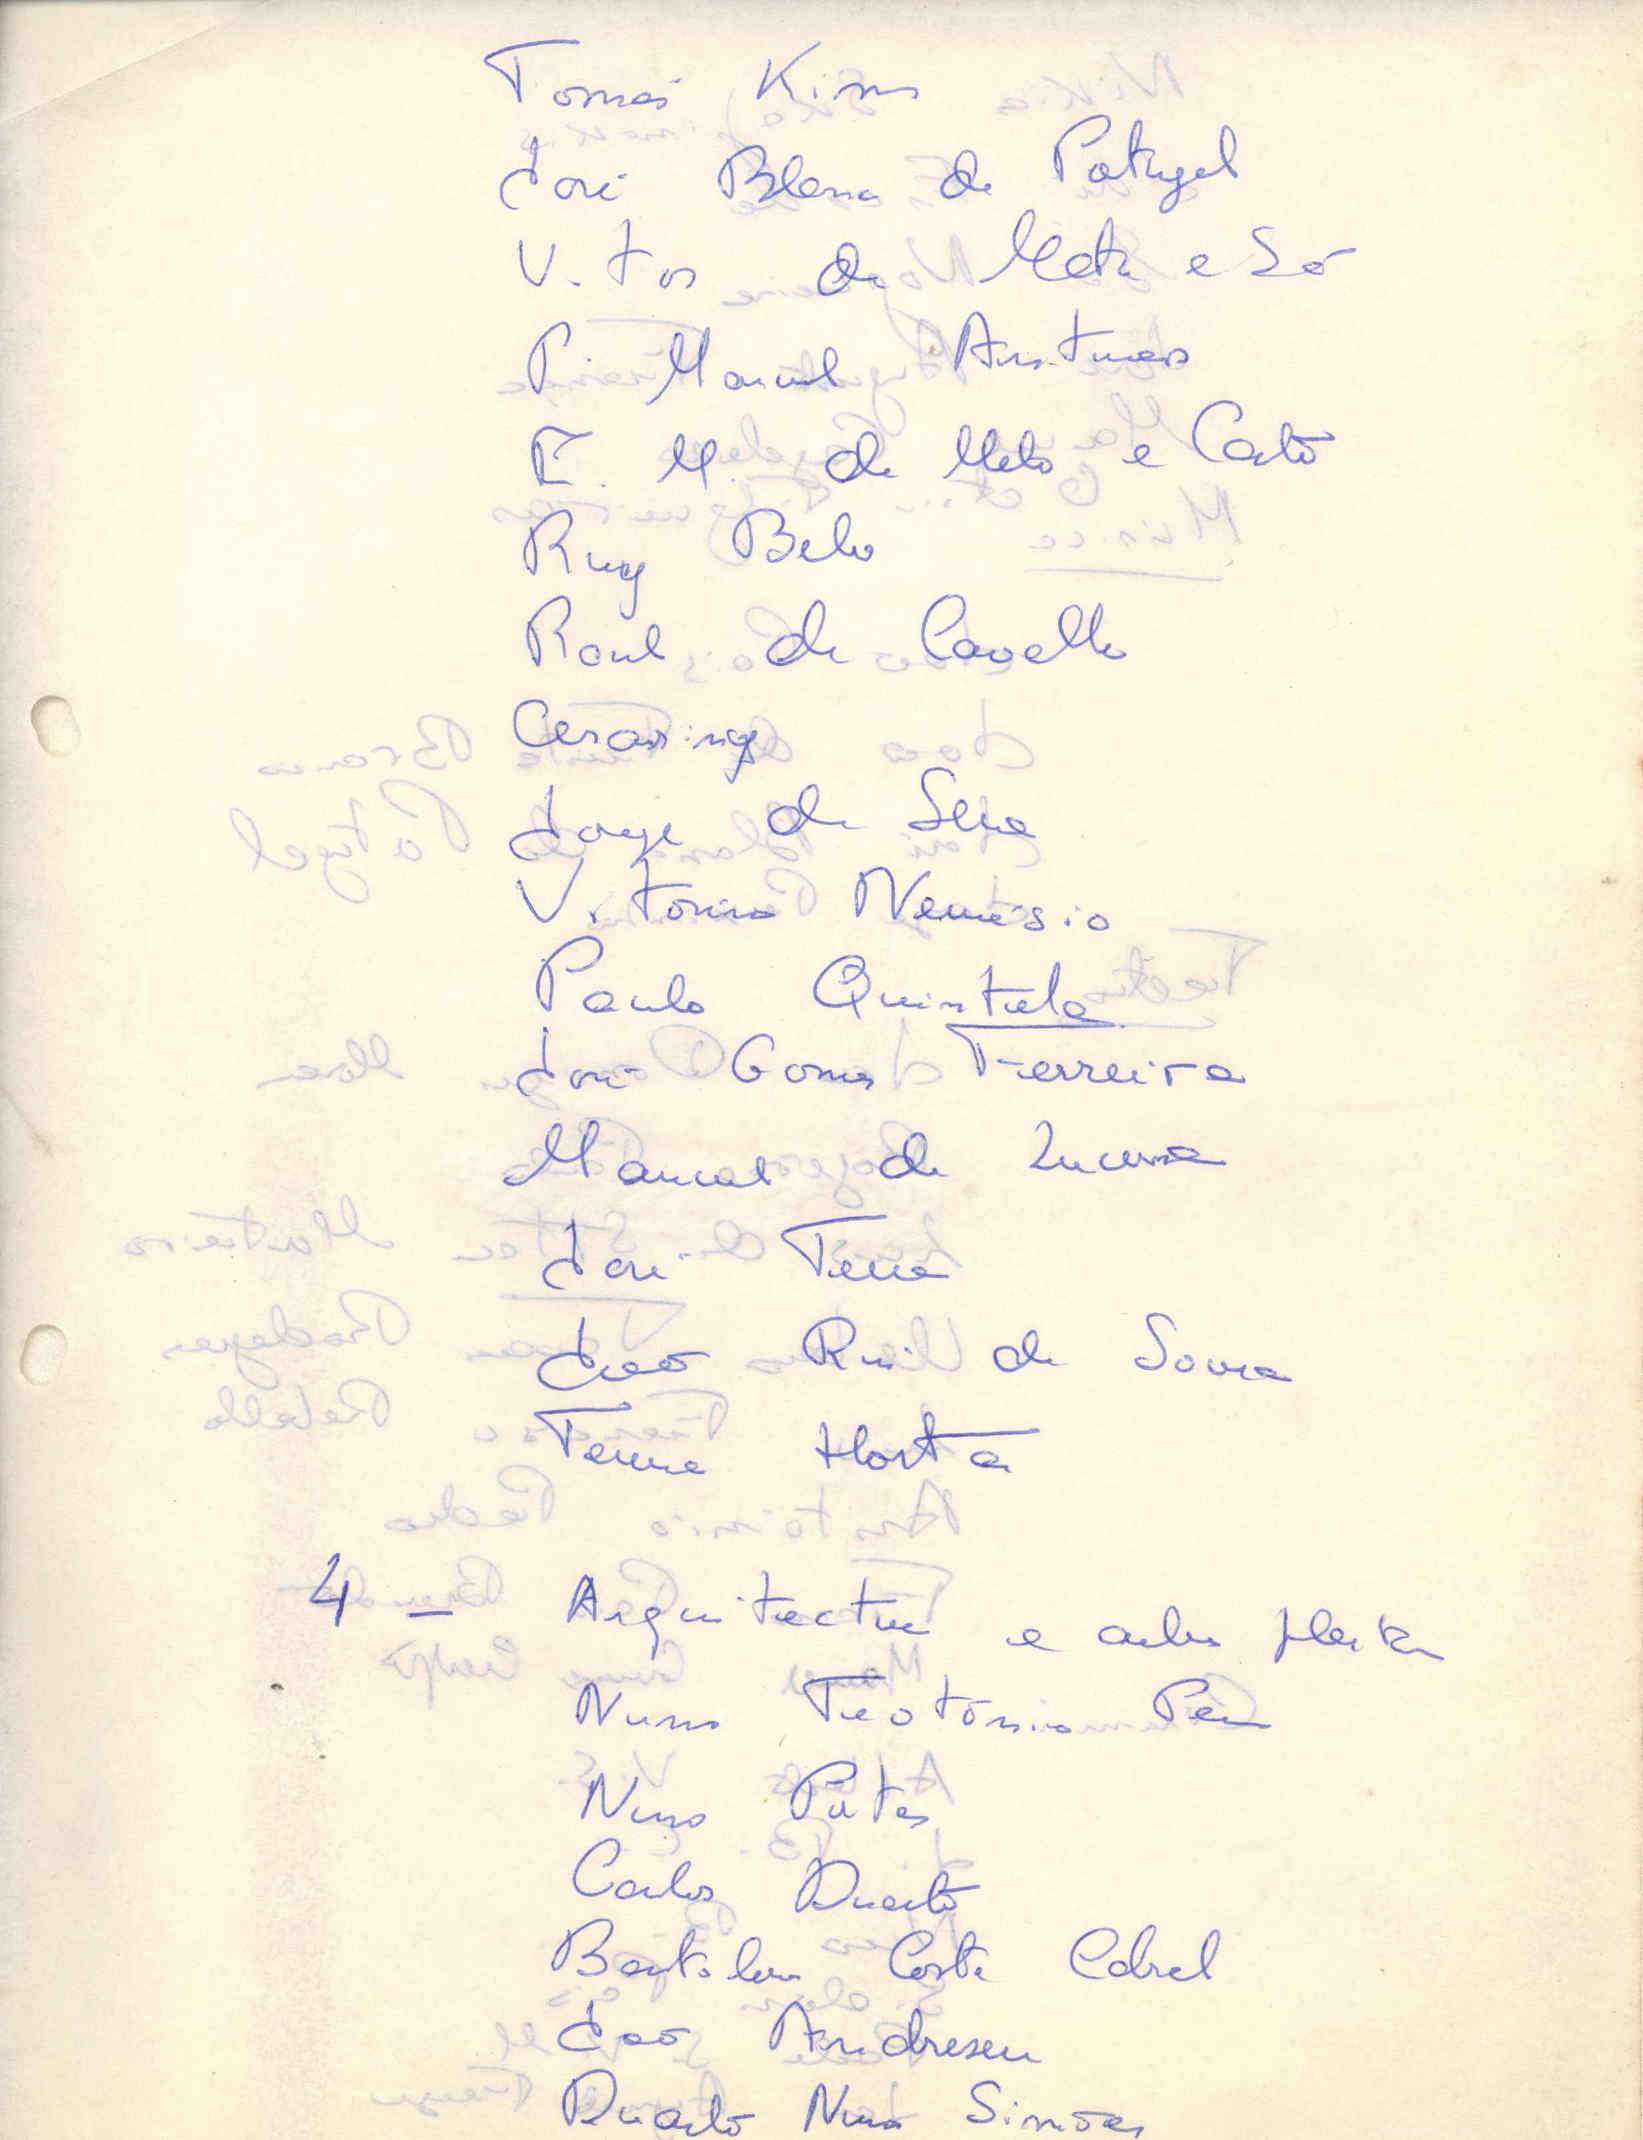 Tomás Kim
José Blanc de Portugal
Vítor de Matos e Sá
P. Manuel Antunes
E. M. de Melo e Castro
Ruy Belo
Raul de Carvalho
Cesariny
Jorge de Sena
Vitorino Nemésio
Paulo Quintela
José Gomes Ferreira
Manuel de Lucena
José
João Rui de Sousa
Horta
4 - Arquitectura e artes plásticas
Nuno Teotónio Pereira
Nuno Portas
Carlos Duarte
Bartolomeu Costa Cabral
João Andresen
Duarto Nuno Simões